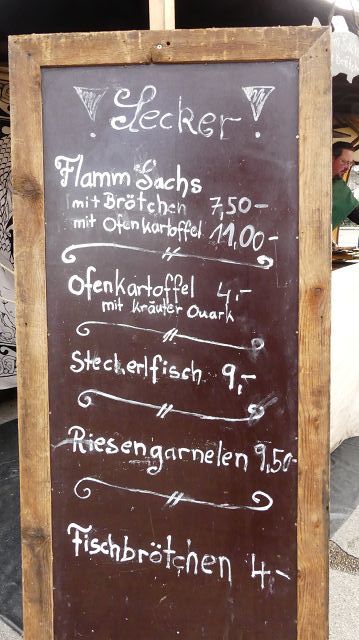 ! Lecker !
Flamm Lachs
mit Brötchen 7,50-
mit Ofenkartoffel 11,00-
Ofenkartoffel 4,-
mit kräuter Quark
Steckerlfisch 9,-
Riesengarnelen 9,50-
Fischbrötchen 4,-